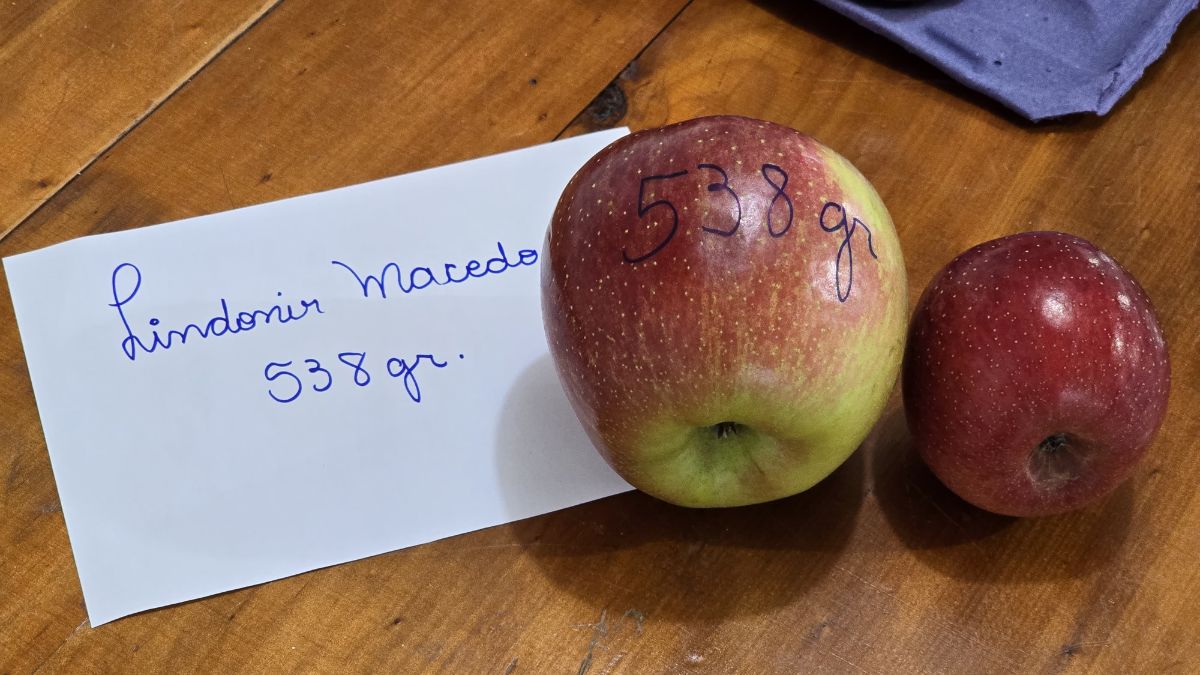 Lindonir Macedo
538 gr.
538 gr